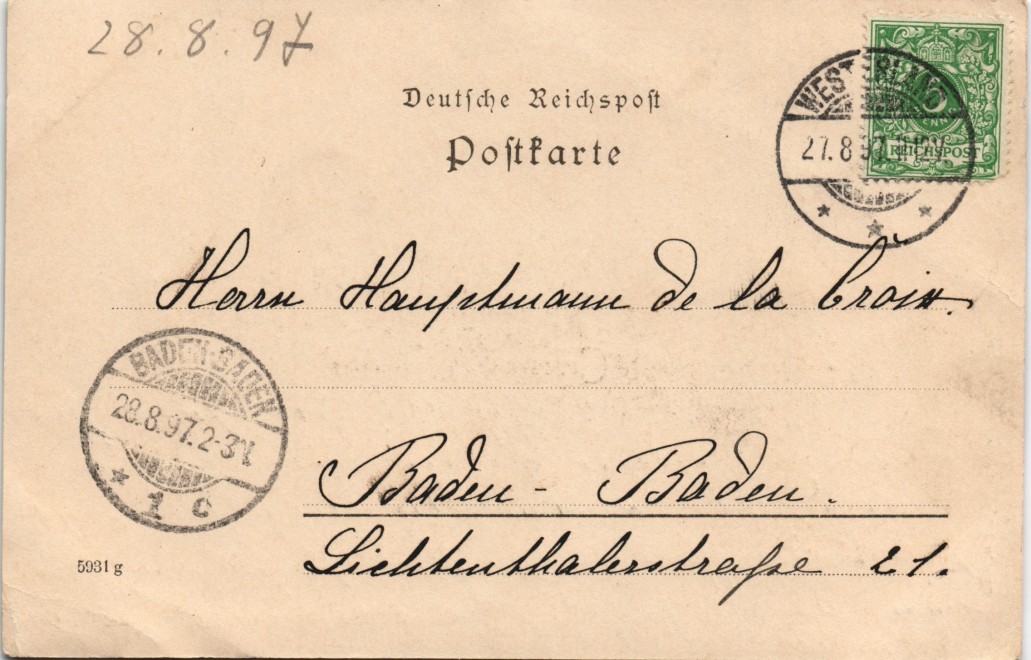 28.8.97
Deutsche Reichspost
Postkarte
WESTERLAND
27.8.97. 11-12V
5
PFENNIG
REICHSPOST
Herrn Hauptmann de la Croix.
BADEN-BADEN
28.8.97.2-3V.
* 1 c
Baden-Baden.
Lichtenthalerstraße 21.
5931 g